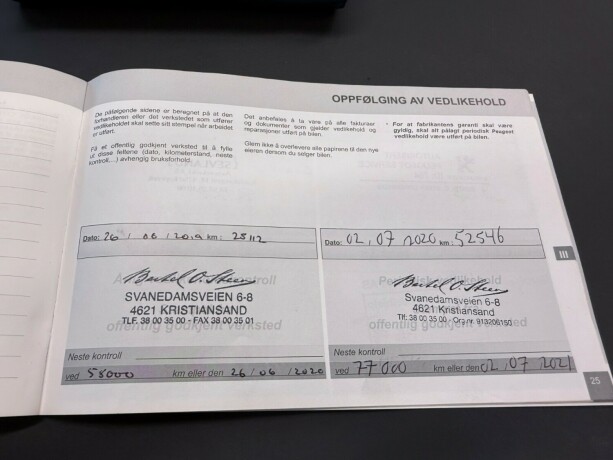 OPPFØLGING AV VEDLIKEHOLD
De påfølgende sidene er beregnet på at den
forhandleren eller det verkstedet som utfører
vedlikeholdet skal sette sitt stempel når arbeidet
er utført.
Få et offentlig godkjent verksted til å fylle
ut disse feltene (dato, kilometerstand, neste
kontroll,...) avhengig bruksforhold.
Det anbefales å ta vare på alle fakturaer
og dokumenter som gjelder vedlikehold og
reparasjoner utført på bilen.
Glem ikke å overlevere alle papirene til den nye
eieren dersom du selger bilen.
- For at fabrikantens garanti skal være
gyldig, skal alt pålagt periodisk Peugeot
vedlikehold være utført på bilen.
Dato: 26 / 06 / 2019 km: 25112
kontroll
SVANEDAMSVEIEN 6-8
4621 KRISTIANSAND
TLF. 38 00 35 00 - FAX 38 00 35 01
offentlig godkjent verksted
Neste kontroll
ved 55000 km eller den 26 / 06 / 2020
Dato: 02, 07 2020 km: 52546
Periodisk vedlikehold
SVANEDAMSVEIEN 6-8
4621 KRISTIANSAND
Tlf: 38 00 35 00 - Org.nr. 913206150
offentlig godkjent verksted
Neste kontroll
ved 77000 km eller den 02, 07 2021
III
25